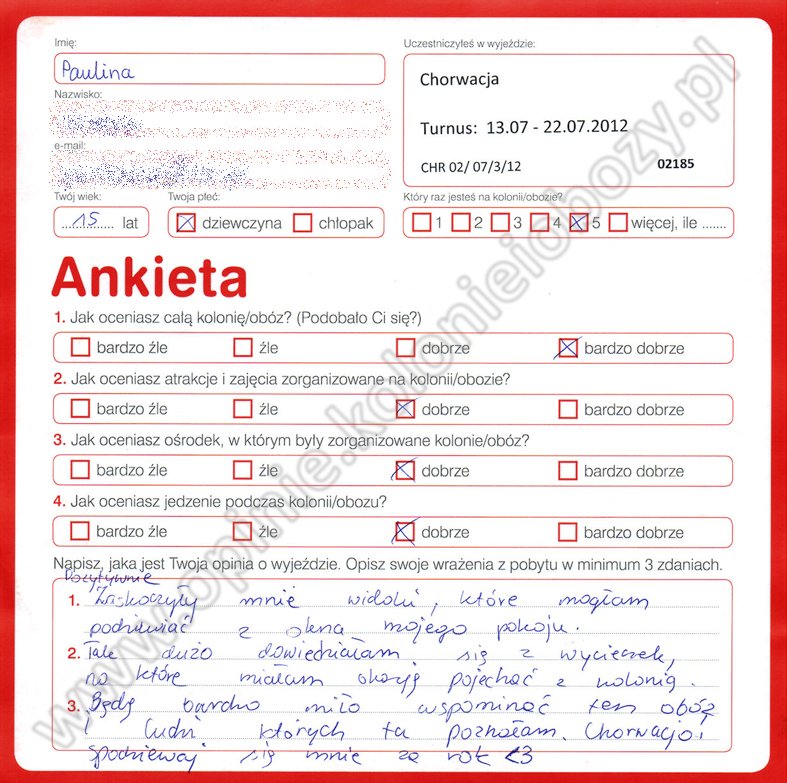 Imię:
Paulina
Nazwisko:
e-mail:
Twój wiek:
15 lat
Twoja płeć:
dziewczyna chłopak
Uczestniczyłeś w wyjeździe:
Chorwacja
Turnus: 13.07 - 22.07.2012
CHR 02/ 07/3/12 02185
Który raz jesteś na kolonii/obozie?
1 2 3 4 5 więcej, ile .......
Ankieta
1. Jak oceniasz całą kolonię/obóz? (Podobało Ci się?)
bardzo źle źle dobrze bardzo dobrze
2. Jak oceniasz atrakcje i zajęcia zorganizowane na kolonii/obozie?
bardzo źle źle dobrze bardzo dobrze
3. Jak oceniasz ośrodek, w którym były zorganizowane kolonie/obóz?
bardzo źle źle dobrze bardzo dobrze
4. Jak oceniasz jedzenie podczas kolonii/obozu?
bardzo źle źle dobrze bardzo dobrze
Napisz, jaka jest Twoja opinia o wyjeździe. Opisz swoje wrażenia z pobytu w minimum 3 zdaniach.
Pozytywnie
1. Zaskoczyły mnie widoki, które mogłam
podziwiać z okna mojego pokoju.
2. Tak dużo dowiedziałam się z wycieczek,
na które miałam okazję pojechać z kolonią.
3. Będę bardzo miło wspominać ten obóz
i ludzi których tu poznałam. Chorwacjo!
spodziewaj się mnie za rok <3
www.opinie.kolonieiobozy.pl